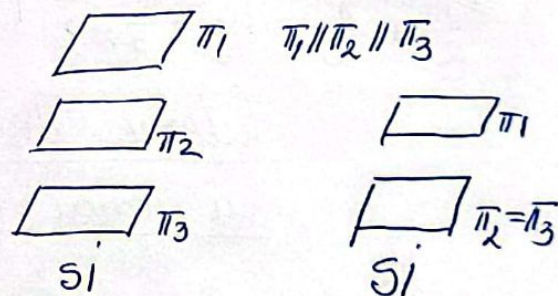 π1 π1 // π2 // π3
π2 π1
π3 π2 = π3
Si Si